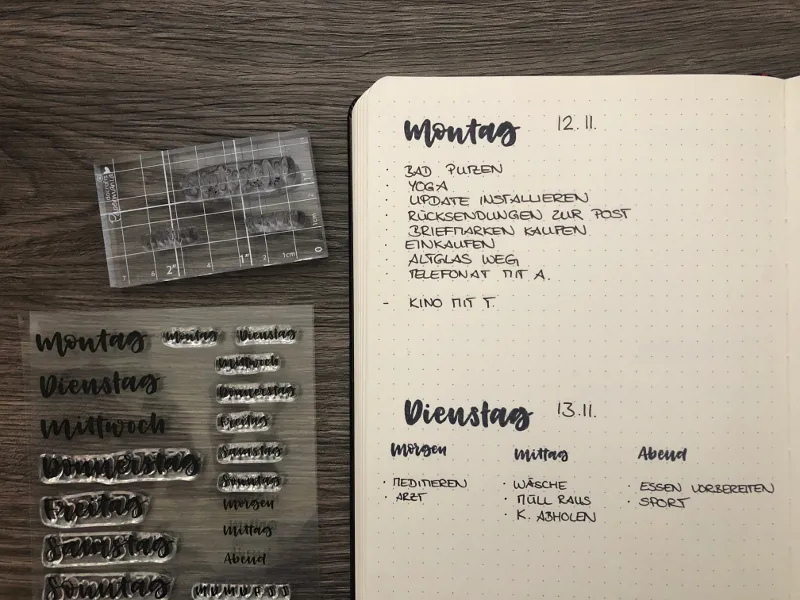 Montag 12.11.
· BAD PUTZEN
· YOGA
· UPDATE INSTALLIEREN
· RÜCKSENDUNGEN ZUR POST
· BRIEFMARKEN KAUFEN
· EINKAUFEN
· ALTGLAS WEG
· TELEFONAT MIT A.
- KINO MIT T.
Dienstag 13.11.
Morgen Mittag Abend
· MEDITIEREN · WÄSCHE · ESSEN VORBEREITEN
· ARZT · MÜLL RAUS · SPORT
· K. ABHOLEN
7 6 2" 4 1" 2 1cm 0
Montag Montag Dienstag
Mittwoch
Dienstag Donnerstag
Mittwoch Freitag
Samstag
Donnerstag Sonntag
Freitag Morgen
Mittag
Samstag Abend
Sonntag